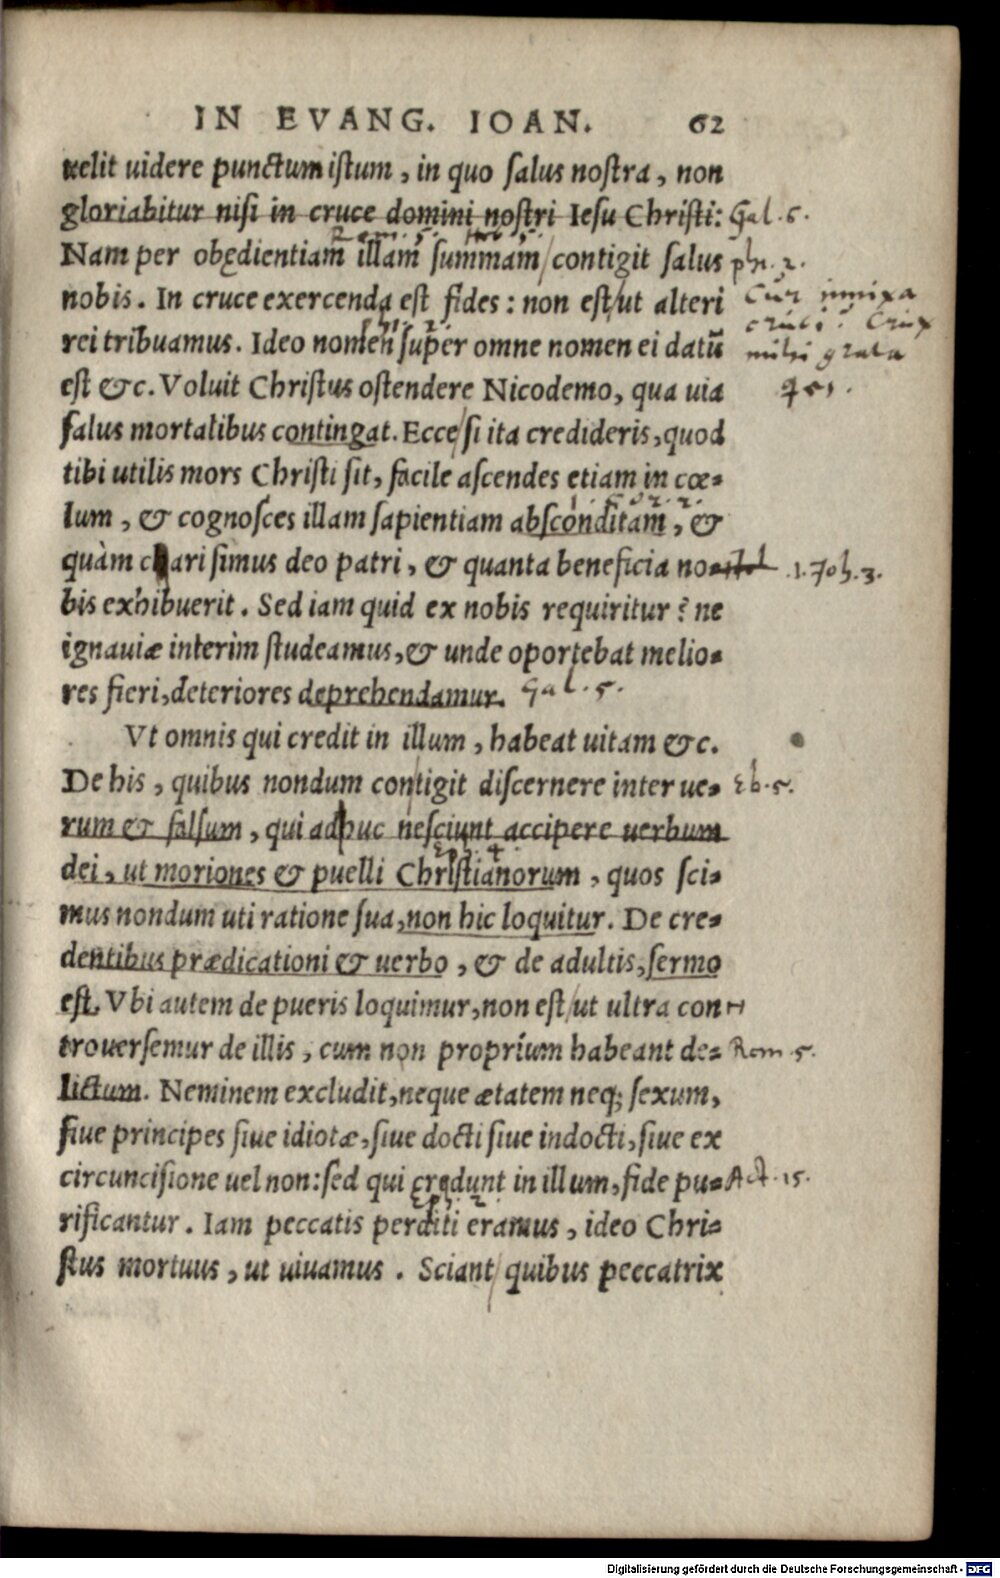 IN EVANG. IOAN. 62
uelit uidere punctum istum, in quo salus nostra, non
gloriabitur nisi in cruce domini nostri Iesu Christi: Gal. 6.
Rom. 5. Heb. 5.
Nam per obędientiam illam summam contigit salus ph. 2.
nobis. In cruce exercenda est fides: non est ut alteri
rei tribuamus. Ideo nomen super omne nomen ei datũ
est &c. Voluit Christus ostendere Nicodemo, qua uia
salus mortalibus contingat. Ecce si ita credideris, quod
tibi utilis mors Christi sit, facile ascendes etiam in cœ=
1. Cor. 2.
lum, & cognosces illam sapientiam absconditam, &
quàm charissimus deo patri, & quanta beneficia no= 1. Joh. 3.
bis exhibuerit. Sed iam quid ex nobis requiritur? ne
ignauiæ interim studeamus, & unde oportebat melio=
res fieri, deteriores deprehendamur. Gal. 5.
Vt omnis qui credit in illum, habeat uitam &c.
De his, quibus nondum contigit discernere inter ue= Eb. 5.
rum & falsum, qui adhuc nesciunt accipere uerbum
Eph. 4
dei, ut moriones & puelli Christianorum, quos sci=
mus nondum uti ratione sua, non hic loquitur. De cre=
dentibus prædicationi & uerbo, & de adultis, sermo
est. Vbi autem de pueris loquimur, non est ut ultra con
trouersemur de illis, cum non proprium habeant de= Rom. 5.
lictum. Neminem excludit, neque ætatem neq; sexum,
siue principes siue idiotæ, siue docti siue indocti, siue ex
circuncisione uel non: sed qui credunt in illum, fide pu= Act. 15.
Eph. 2
rificantur. Iam peccatis perditi eramus, ideo Chri=
stus mortuus, ut uiuamus. Sciant quibus peccatrix
Cur innixa
cruci? Crux
mihi grata
Digitalisierung gefördert durch die Deutsche Forschungsgemeinschaft - DFG